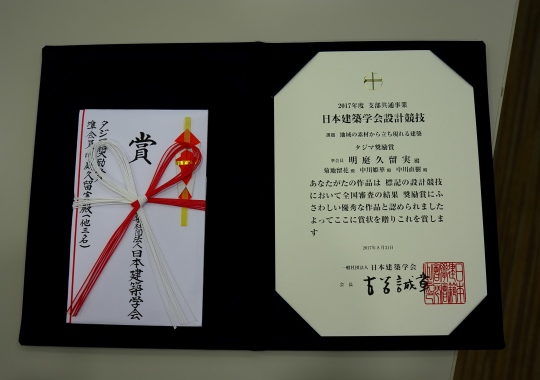 賞
タジマ奨励賞
準会員 明庭久留実殿(他三名)
社団法人日本建築学会
2017年度 支部共通事業
日本建築学会設計競技
課題 地域の素材から立ち現れる建築
タジマ奨励賞
準会員 明庭久留実 殿
菊地留花 殿 中川姫華 殿
あなたがたの作品は 標記の設計競技
において全国審査の結果 奨励賞にふ
さわしい優秀な作品と認められました
よってここに賞状を贈りこれを賞しま
す
2017年8月31日
一般社団法人 日本建築学会
会長 古谷誠章